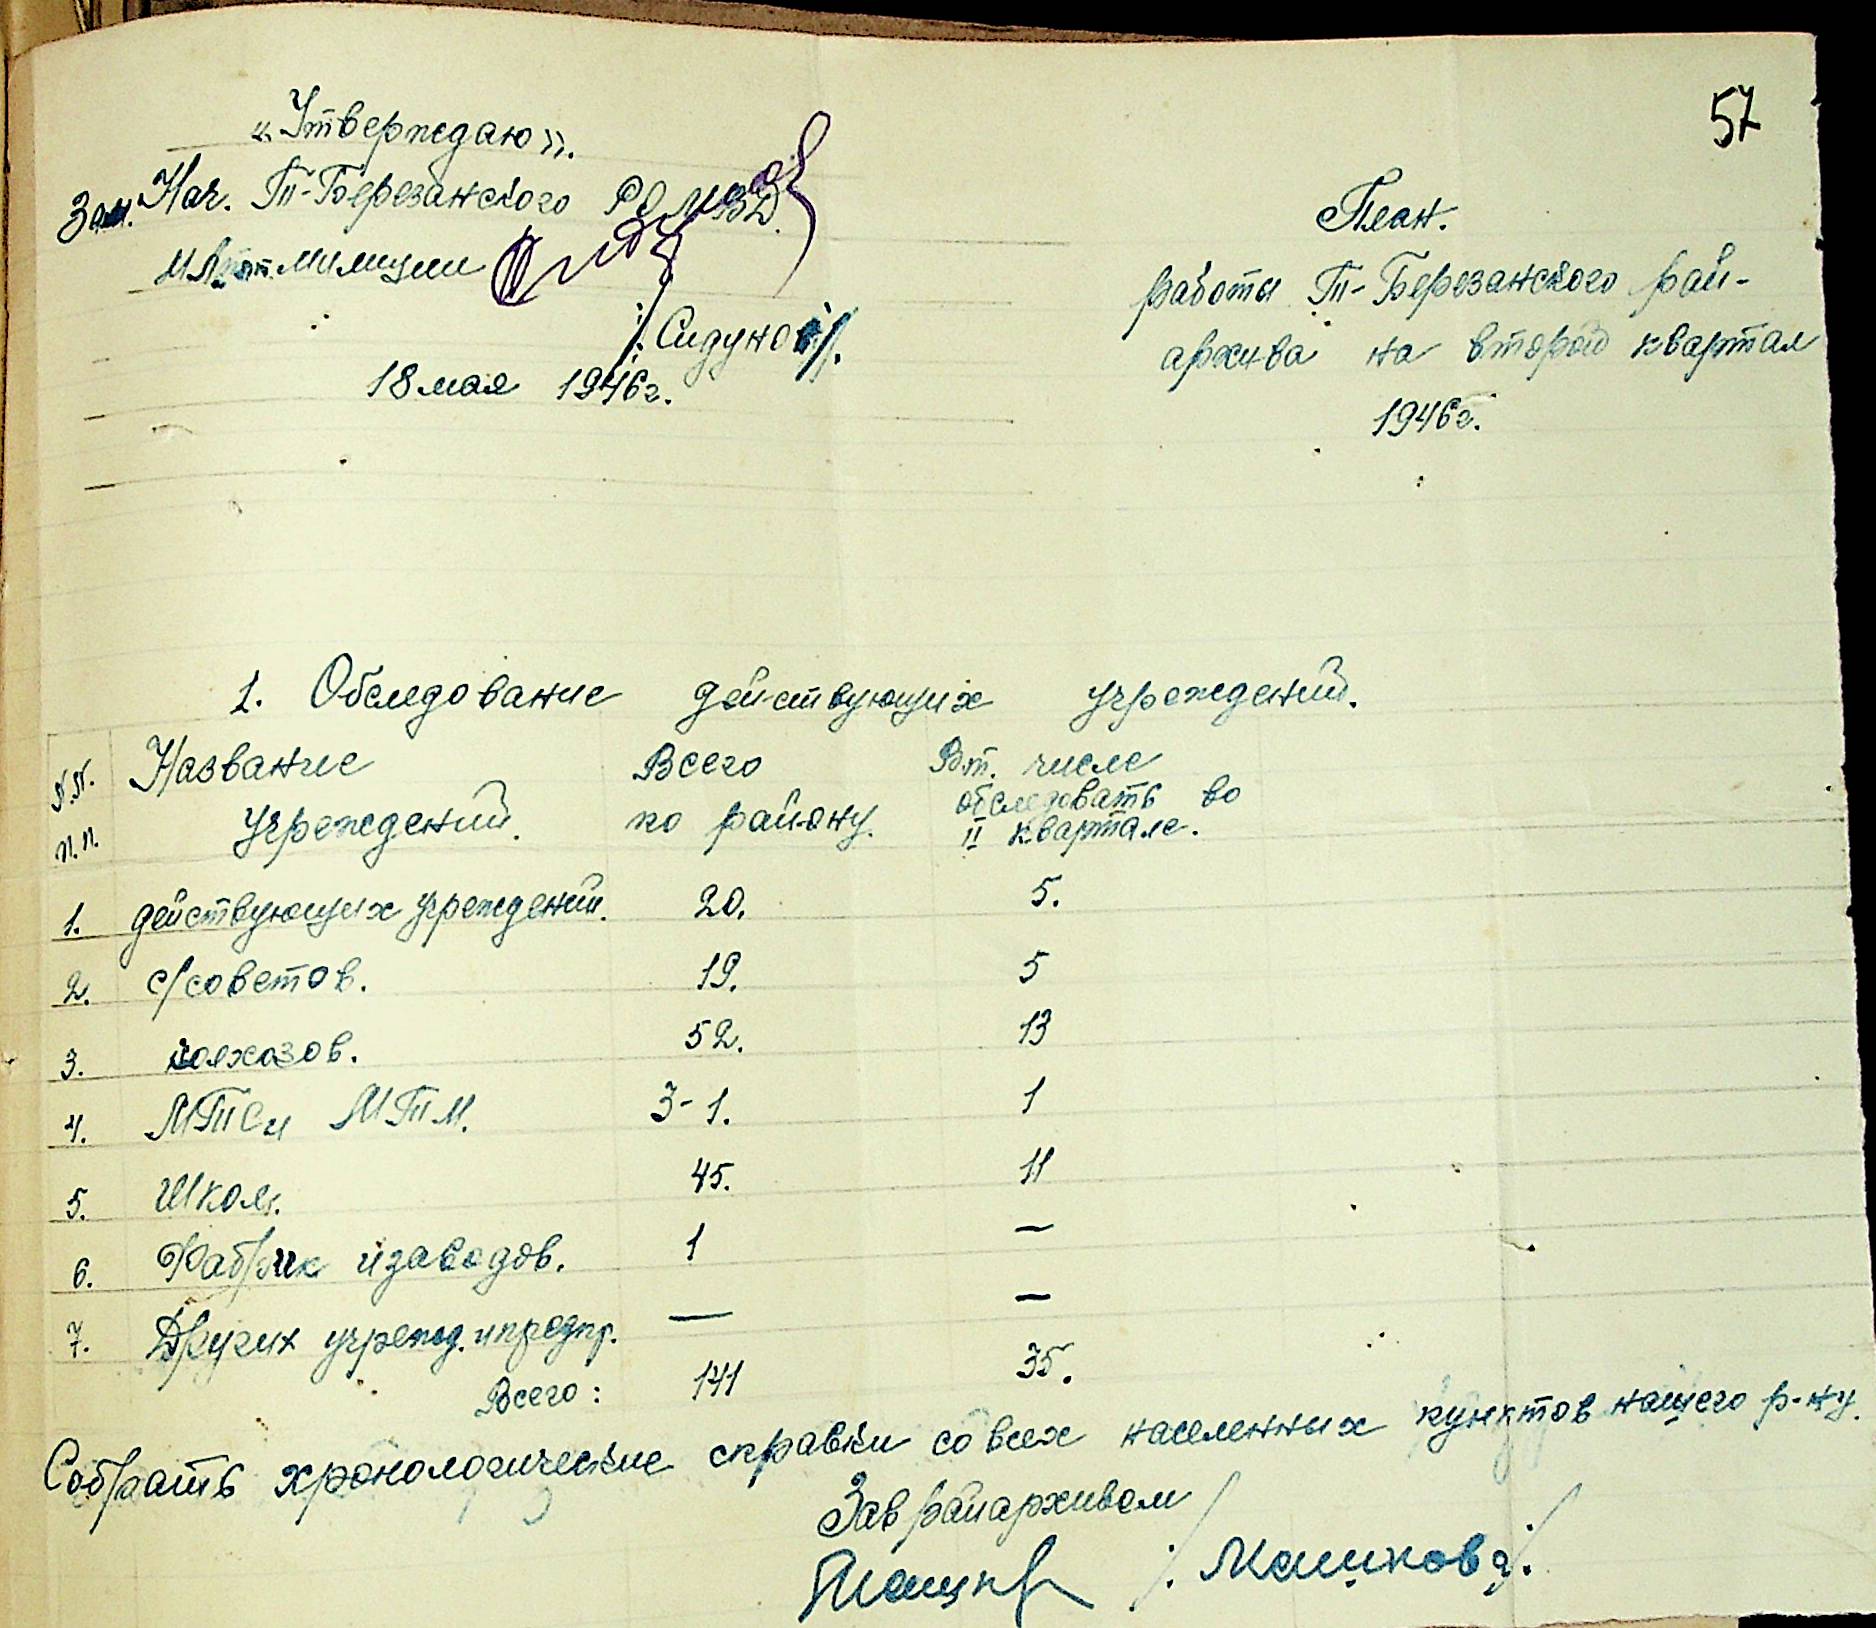 57
«Утверждаю».
Зам. Нач. Т-Березанского РО МВД.
Мл. лт. милиции
/:Сидунов:/.
18 мая 1946 г.
План.
работы Т-Березанского рай-
архива на второй квартал
1946 г.
1. Обследование действующих учреждений.
№.№. п.п. Название учреждений. Всего по району. В т. числе обследовать во II квартале.
1. действующих учреждений. 20. 5.
2. с/советов. 19. 5
3. колхозов. 52. 13
4. МТС и МТМ. 3-1. 1
5. Школ. 45. 11
6. Фабрик и заводов. 1 —
7. Других учрежд. и предпр. — —
Всего: 141 35.
Собрать хронологические справки со всех населенных пунктов нашего р-ну.
Зав райархивом
/:Машкова:/